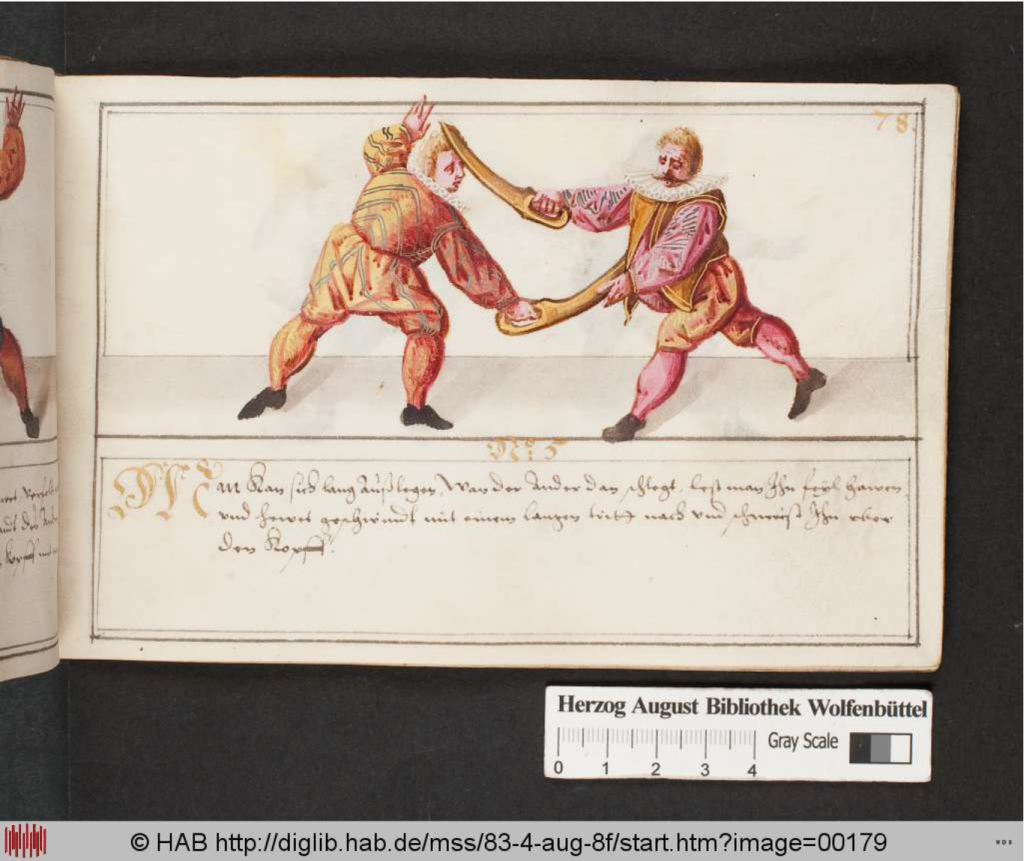 78.
No: 5
Man Kan sich lang außlegen, Wan der Ander dan schlegt, lest man Ihn fehl hawen
vnd hewet geschwindt mit einem langen tritt nach vnd schmeist Ihn vber
den Kopff.
Herzog August Bibliothek Wolfenbüttel
Gray Scale
0 1 2 3 4
© HAB http://diglib.hab.de/mss/83-4-aug-8f/start.htm?image=00179